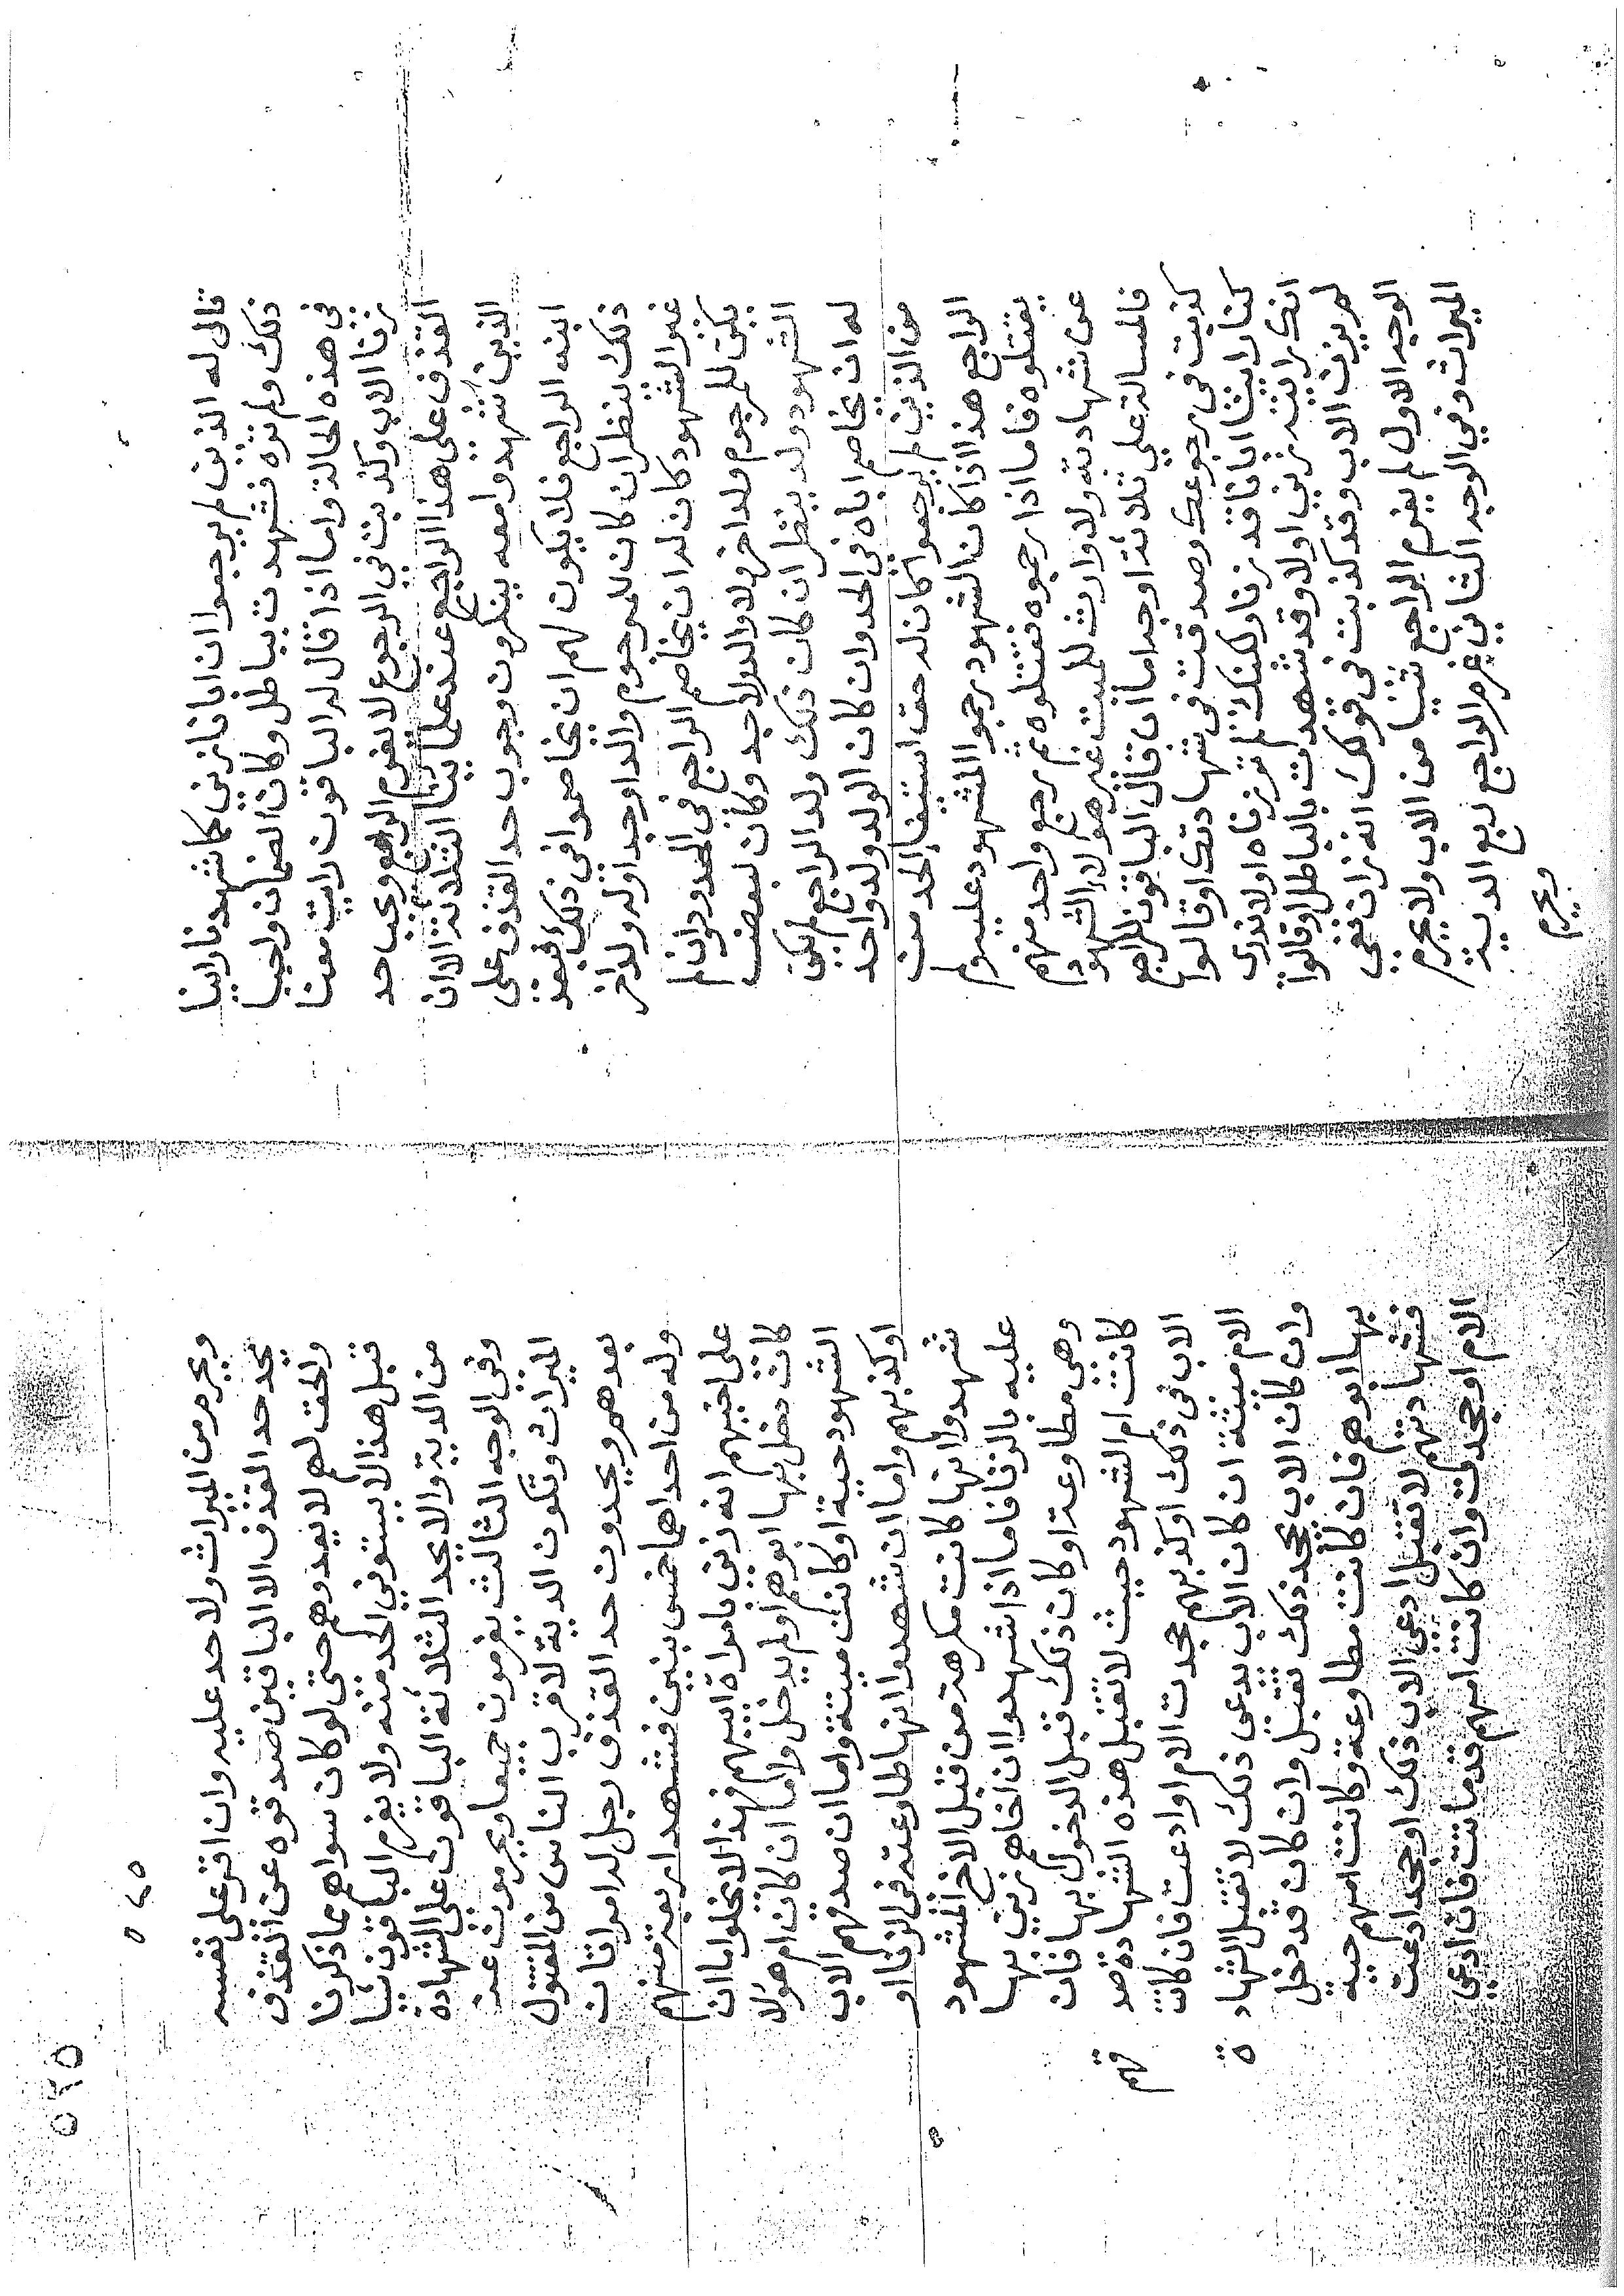 قال له الذين لم يرجعوا ان ابانا زنى كما شهدنا راينا
ذلك ولم تره فشهدت بباطل وكان الضمان واجبا
في هذه الحالة واما اذا قال له الباقون رايت معنا
زنا الاب وكذبت في الرجوع لا يغرم الراجع ويجب حد
القذف على هذا الراجع عند علمائنا الثلاثة الا ان
الذين شهدوا معه ينكرون وجوب حد القذف على
ابنه الراجع فلا يكون لهم ان يخاصموا في ذلك فبعد
ذلك ينظر ان كان للمرجوم والد او جد او له ولد اخر
غير الشهود كان له ان يخاصم الراجع في الحد وان لم
يكن للمرجوم ولد اخر ولا والد ولا جد وكان لبعض
الشهود ولد ينظر ان كان ذلك ولد الراجع لم يكن
له ان يخاصم اباه في الحد وان كان الولد ولد واحد
من الذين لم يرجعوا كان له حق استيفا الحد من
الراجع هذا اذا كان الشهود رجموا المشهود عليه ولم
يقتلوه فاما اذا رجموه فقتلوه ثم رجع واحد منهم
عن شهادته ولا وارث للميت غير هولاء الشهود
فالمسالة على ثلاثة اوجه اما ان قال الباقون للراجع
كذبت في رجوعك وصدقت في شهادتك او قالوا
كنا راينا ابانا قد زنا ولكنك لم تر زناه او لا ندري
انك رايته زنى اولا وقد شهدت بالباطل او قالوا
لم يزن الاب وقد كذبت في قولك انه زان ففي
الوجه الاول لم يغرم الراجع شيئا من الاب ولا يحرم
الميراث وفي الوجه الثاني غرم الراجع ربع الدية
ويحرم
٥٢٥
٥٢٥
ويحرم من الميراث ولا حد عليه وان اقر على نفسه
بحد حد القذف الا ان الباقين صدقوه عن القذف
والحق لهم لا يعدوهم حتى لو كان سواهم مما ذكرنا
قبل هذا الا يستوفي الحد منه ولا يغرم الباقون شيا
من الدية والا يحد الثلاثة الباقون على الشهادة
وفي الوجه الثالث يغرمون جميعا ويحرمون عن
الميراث وتكون الدية لاقرب الناس من المقتول
بعدهم ويحدون حد القذف رجل له امراتان
وله من احداهما خمس بنين فشهد اربعة منهم
على اخيهم انه زنى بامراة ابيهم فهذا لا يخلوا اما ان
كان دخل بها ابوهم او لم يدخل واما ان كان ام هولا
الشهود حية او كانت ميتة واما ان صدقهم الاب
او كذبهم واما ان شهدوا انها طاوعته في الزنا او
شهدوا انها كانت مكرهة من قبل الاخ المشهود
عليه بالزنا فاما اذا شهدوا ان اخاهم زنى بها
وهي مطاوعة او كان ذلك قبل الدخول بها فان
كانت ام الشهود حية لا تقبل هذه الشهادة صدقهم
الاب في ذلك او كذبهم جحدت الام او ادعت فان كانت
الام ميتة ان كان الاب يدعى ذلك لا تقبل الشهادة
وان كان الاب يجحد ذلك تقبل وان كان قد دخل
بها ابوهم فان كانت مطاوعة وكانت امهم حية
فشهادتهم لا تقبل ادعى الاب ذلك او جحد ادعت
الام او جحدت وان كانت امهم قد ماتت فان ادعى